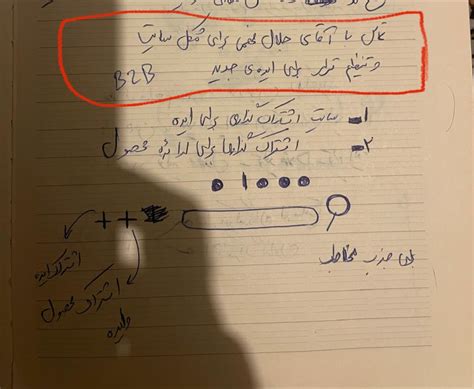 تماس با آقای جلال نجمی برای مشکل سایت
و تنظیم قرار برای ایده‌ی جدید B2B
۱- سایت اشتراک گذاری برای ایده
۲- اشتراک گذارها برای ارائه محصول
+ +
برای جذب مخاطب
اشتراک ایده
اشتراک محصول
و ایده